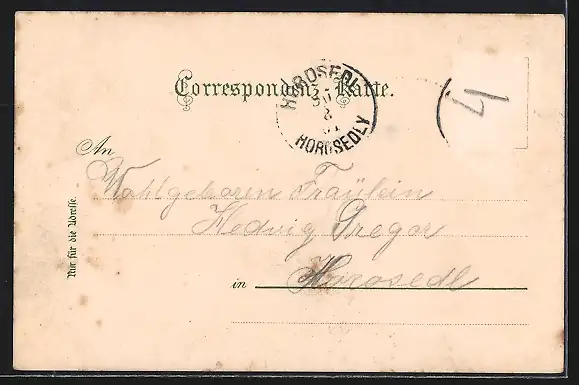 Correspondenz-Karte.
HOROSEDL
HOROSEDLY
4
An
Wohlgeboren Fräulein
Hedwig Gregor
in Horosedl
Nur für die Adresse.